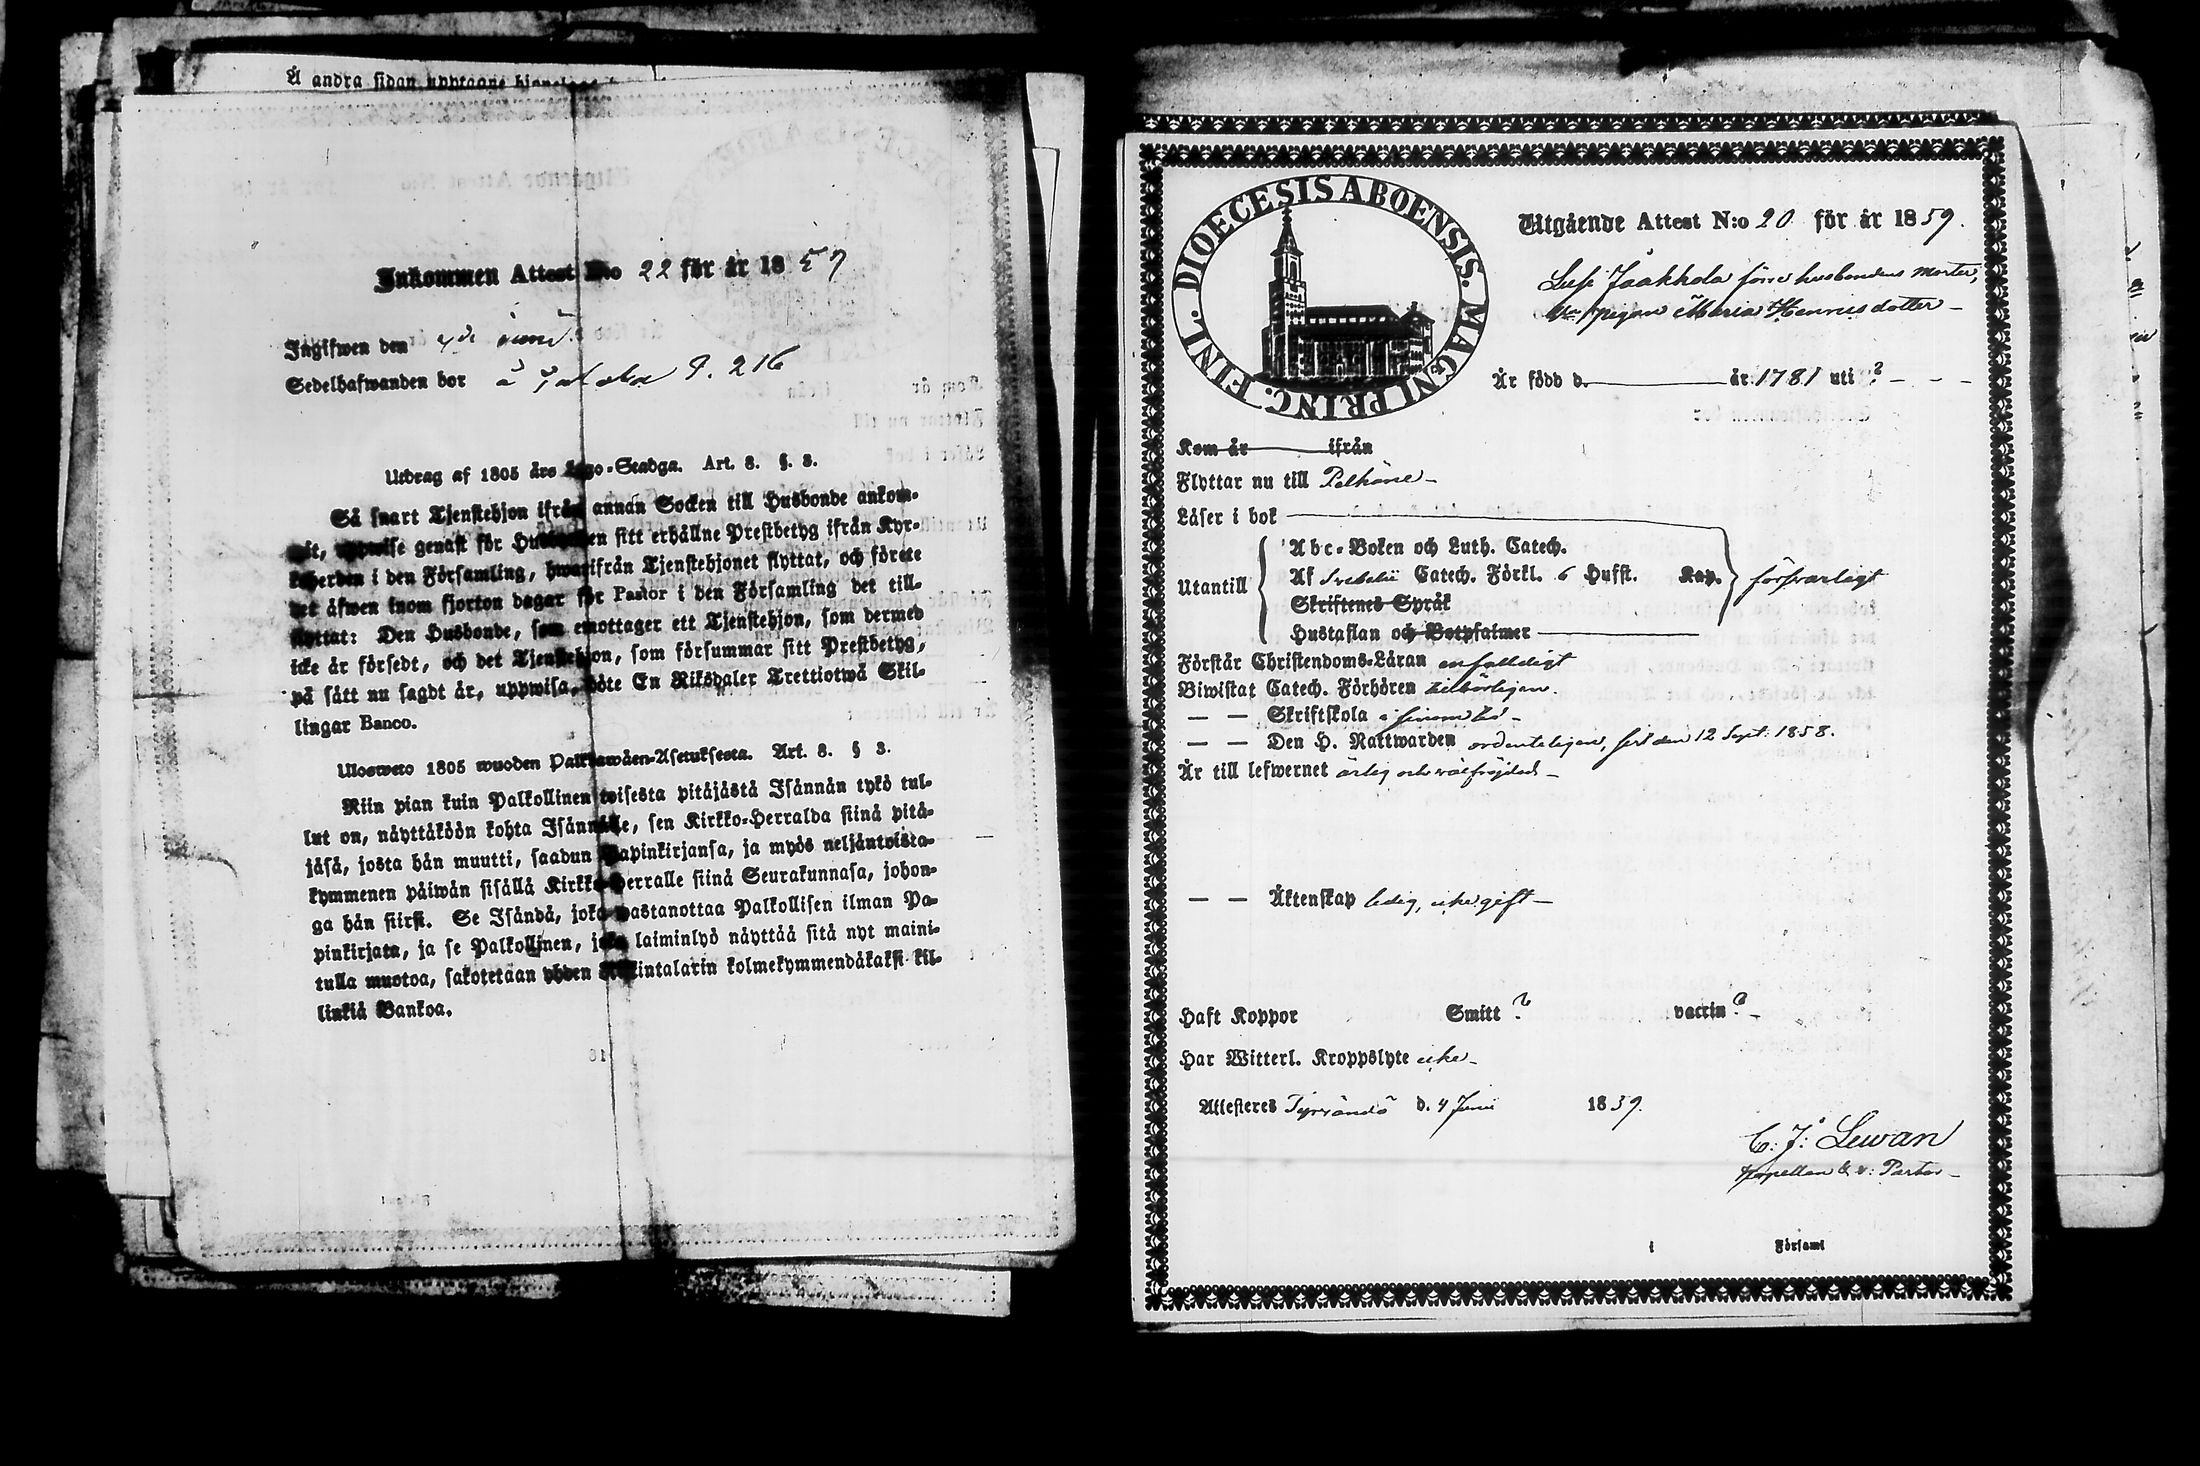 Å andra sidan upptagne
Inkommen Attest N:o 22 för år 1859
Ingifwen den
Sedelhafwanden bor å P. 216
Utdrag af 1805 års Lego-Stadga. Art. 8. §. 3.
Så snart Tjenstehjon ifrån annan Socken till Husbonde ankom-
mit, uppwise genast för Husbonden sitt erhållne Prestbetyg ifrån Kyr-
koherden i den Församling, hwarifrån Tjenstehjonet flyttat, och förete
det äfwen inom fjorton dagar för Pastor i den Församling det till-
flyttat: Den Husbonde, som emottager ett Tjenstehjon, som dermed
icke är försedt, och det Tjenstehjon, som försummar sitt Prestbetyg,
på sätt nu sagdt är, uppwisa, böte En Riksdaler Trettiotwå Skil-
lingar Banco.
Ulosweto 1805 wuoden Palkkawäen-Asetuksesta. Art. 8. § 3.
Niin pian kuin Palkollinen toisesta pitäjästä Isännän tykö tul-
lut on, näyttäköön kohta Isännälle, sen Kirkko-Herralda siinä pitä-
jäsä, josta hän muutti, saadun Papinkirjansa, ja myös neljäntoista-
kymmenen päiwän sisällä Kirkko-Herralle siinä Seurakunnasa, johon-
ga hän siirsi. Se Isändä, joka wastanottaa Palkollisen ilman Pa-
pinkirjata, ja se Palkollinen, joka laiminlyö näyttää sitä nyt maini-
tulla muotoa, sakotetaan yhden Riikintalarin kolmekymmendäkaksi kil-
linkiä Bankoa.
DIOECESIS ABOENSIS. MAGNI PRINC. FINL.
Utgående Attest N:o 20 för år 1859.
Jaakkola förre husbondens moster,
pigan Maria Henriksdotter -
Är född d. ——— år 1781 uti ? - - -
Kom år ——— ifrån
Flyttar nu till Pelkäne -
Läser i bok
Abc-Boken och Luth. Catech.
Utantill Af Svebelii Catech. Förkl. 6 Hufst. Kap. försvarligt
Skriftenes Språk
Hustaflan och Botpsalmer
Förstår Christendoms-Läran enfalldigt
Biwistat Catech. Förhören tillbörligen.
— — Skriftskola i sinom tid -
— — Den H. Nattwarden ordenteligen, sist den 12 Sept. 1858.
Är till lefwernet ärlig och välfrejdad -
— — Äktenskap ledig, icke gift -
Haft Koppor Smitt ? vaccin ? -
Har Witterl. Kroppslyte icke -
Attesteres Tyrvändö d. 4 Junii 1859.
C: J: Lewan
Kapellan & v: Pastor -
i Församl